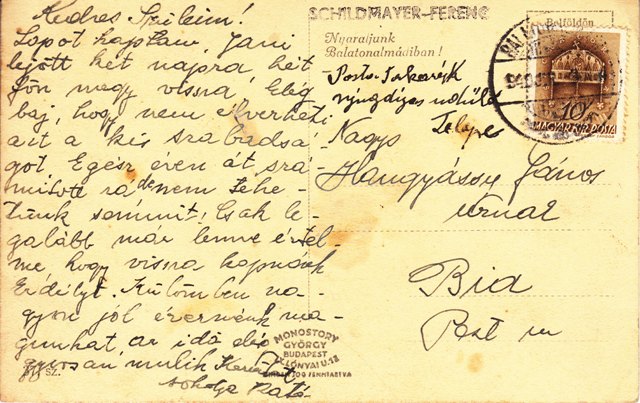 Kedves Szüleim!
Lapot kaptam, Jani
lejött két napra, hét
főn megy vissza, elég
baj, hogy nem élverheti
azt a kis szabadsá
got. Egész éven át szá
mitott rá de nem tehe-
tünk semmit! Csak le-
galább már lenne értel-
me hogy vissza kapnánk
Erdélyt. Külömben na-
gyon jól érezzük ma-
gunkat az idő elég
gyorsan mulik
sokolja Kató
SCHILDMAYER-FERENC
Nyaraljunk
Balatonalmádiban!
Belföldön
Posta Takarék
nyugdijas üdülő
Telepe
10 f
MAGYAR KIR. POSTA
Nagys
Hangyássy János
urnak
Bia
Pest m
MONOSTORY
GYÖRGY
BUDAPEST
LÓNYAI U. 18
MINDEN JOG FENNTARTVA
SZ.